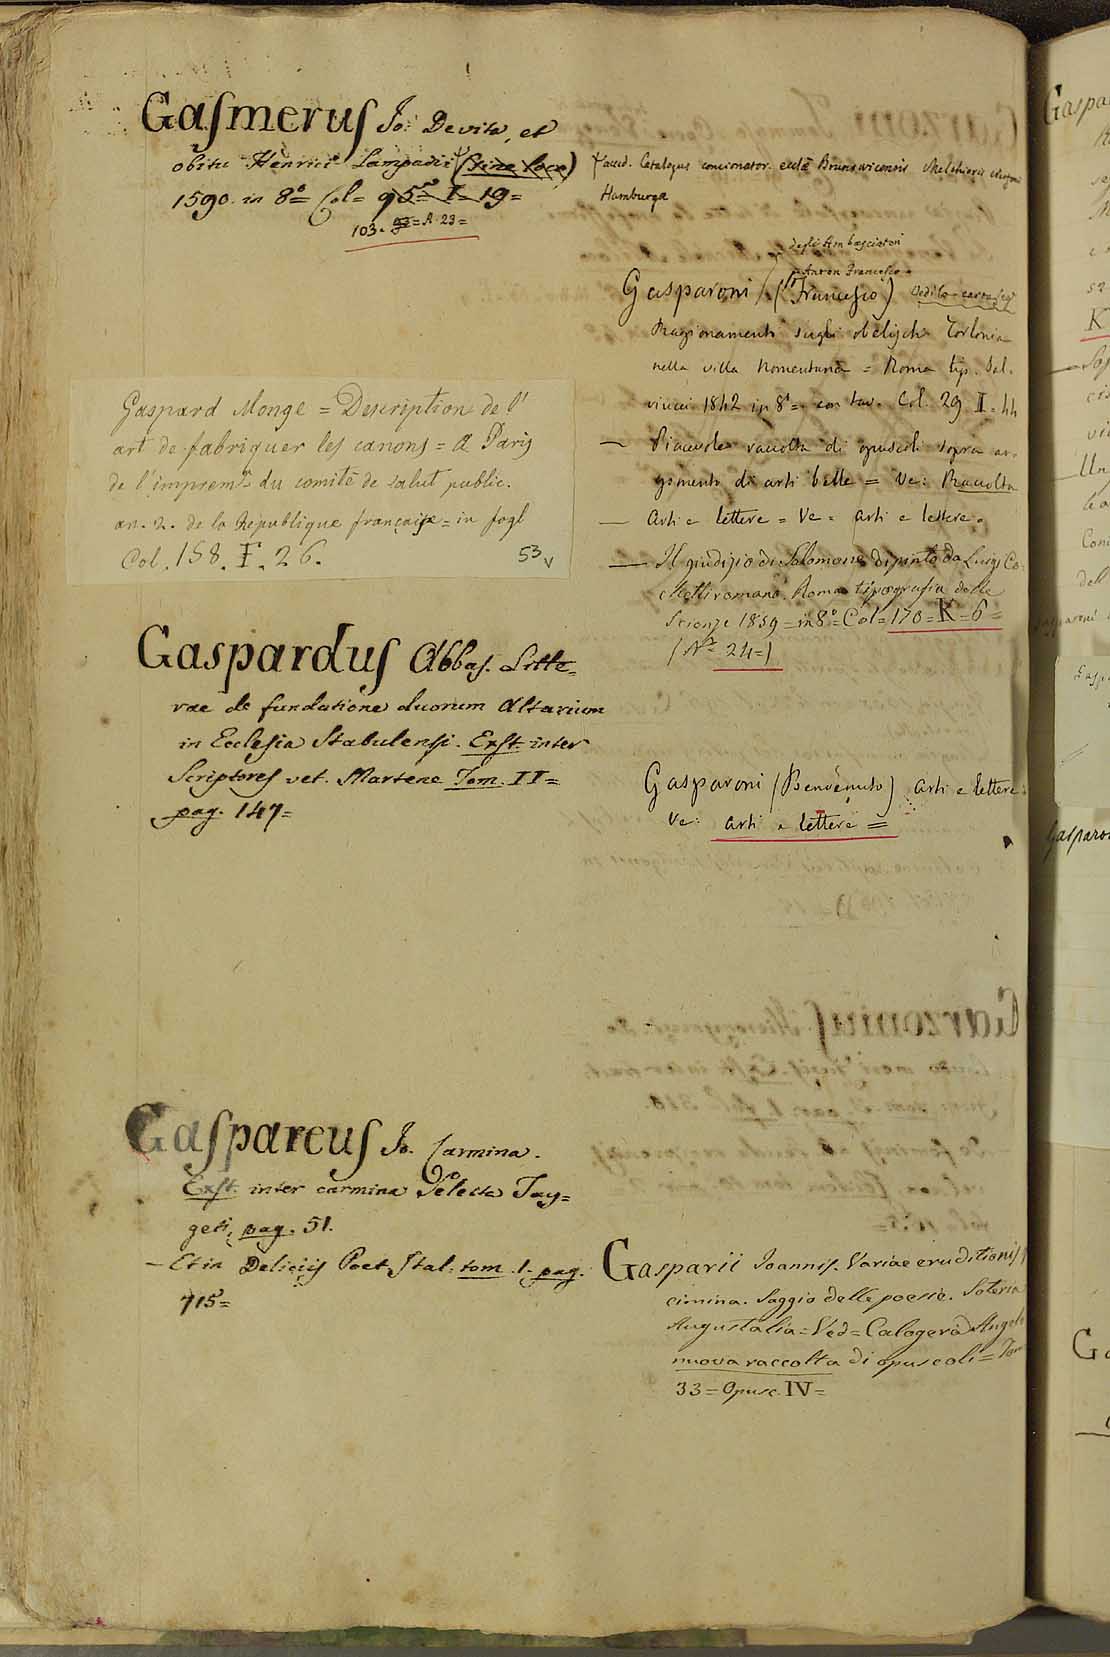 Gasmerus Jo: De vita, et
obitu Henrici Lampadii (sine loco)
1590. in 8º = Col = 95 = I = 19 =
103. = A. 23 =
Gaspard Monge = Description de l'
art de fabriquer les canons = A Paris
de l'imprem.e du comité de salut public.
an. 2. de la Republique française = in fogl
Col. 158. F. 26.
53 v
Gaspardus Abbas. Litte=
rae de fundatione duorum Altarium
in Ecclesia Stabulensi. Exst. inter
Scriptores vet. Martene Tom. II =
pag. 147 =
Gaspareus Jo. Carmina.
Exst. inter carmina Selecta Tay=
geti, pag. 51.
— Et in Deliciis Poet. Ital. tom. 1. pag.
715 =
acced. Catalogus concionator. eccle Brunsvicensis Melchioris
Hamburgæ
degli Ambasciatori
Anton Francesco
Gasparoni (Francesco)
Ragionamento sugli obelischi Torlonia
nella villa Nomentana = Roma tip. Sal.
viucci 1842 in 8º = con tav. Col. 29 I. 44
— Piacevole raccolta di opuscoli sopra ar.
gomento di arti belle = Ve: Raccolta
— Arti e lettere = Ve = arti e lettere =
— Il giudizio di Salomone dipinto da Luigi Co:
chetti romano. Roma tipografia delle
Scienze 1839 = in 8º = Col = 170 = K = 6 =
(Nº 24 =)
Gasparoni (Benvenuto) arti e lettere:
Ve: arti e lettere =
Gasparii Joannis. Variae eruditionis
cimina. Saggio delle poesie. Soteria
Augustalia = Ved = Calogerà Angelo
nuova raccolta di opuscoli = Tom
33 = Opusc. IV =